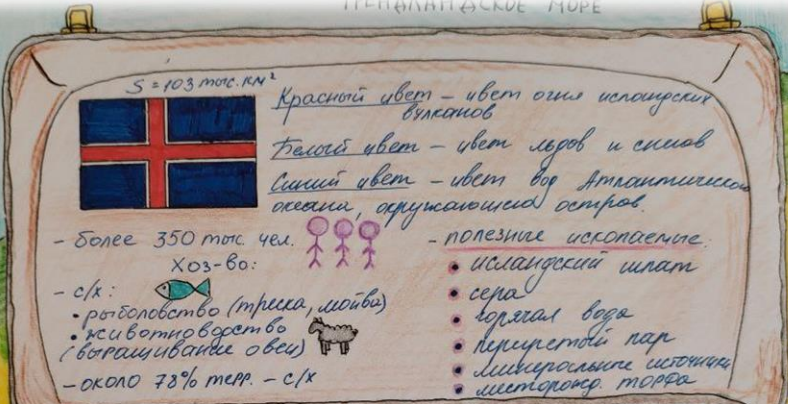 ГРЕНЛАНДСКОЕ МОРЕ
S = 103 тыс. км²
Красный цвет – цвет огня исландских
вулканов
Белый цвет – цвет льдов и снегов
Синий цвет – цвет вод Атлантического
океана, окружающих остров.
– более 350 тыс. чел.
Хоз-во:
– с/х:
• рыболовство (треска, мойва)
• животноводство
(выращивание овец)
– около 78% терр. – с/х
– полезные ископаемые:
• исландский шпат
• сера
• горячая вода
• перегретый пар
• минеральные источники
• месторожд. торфа